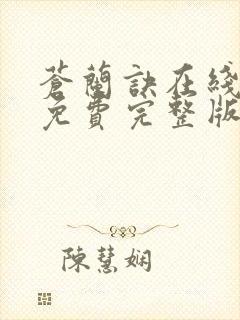 蒼蘭訣在綫
免費完整版
陳慧嫻